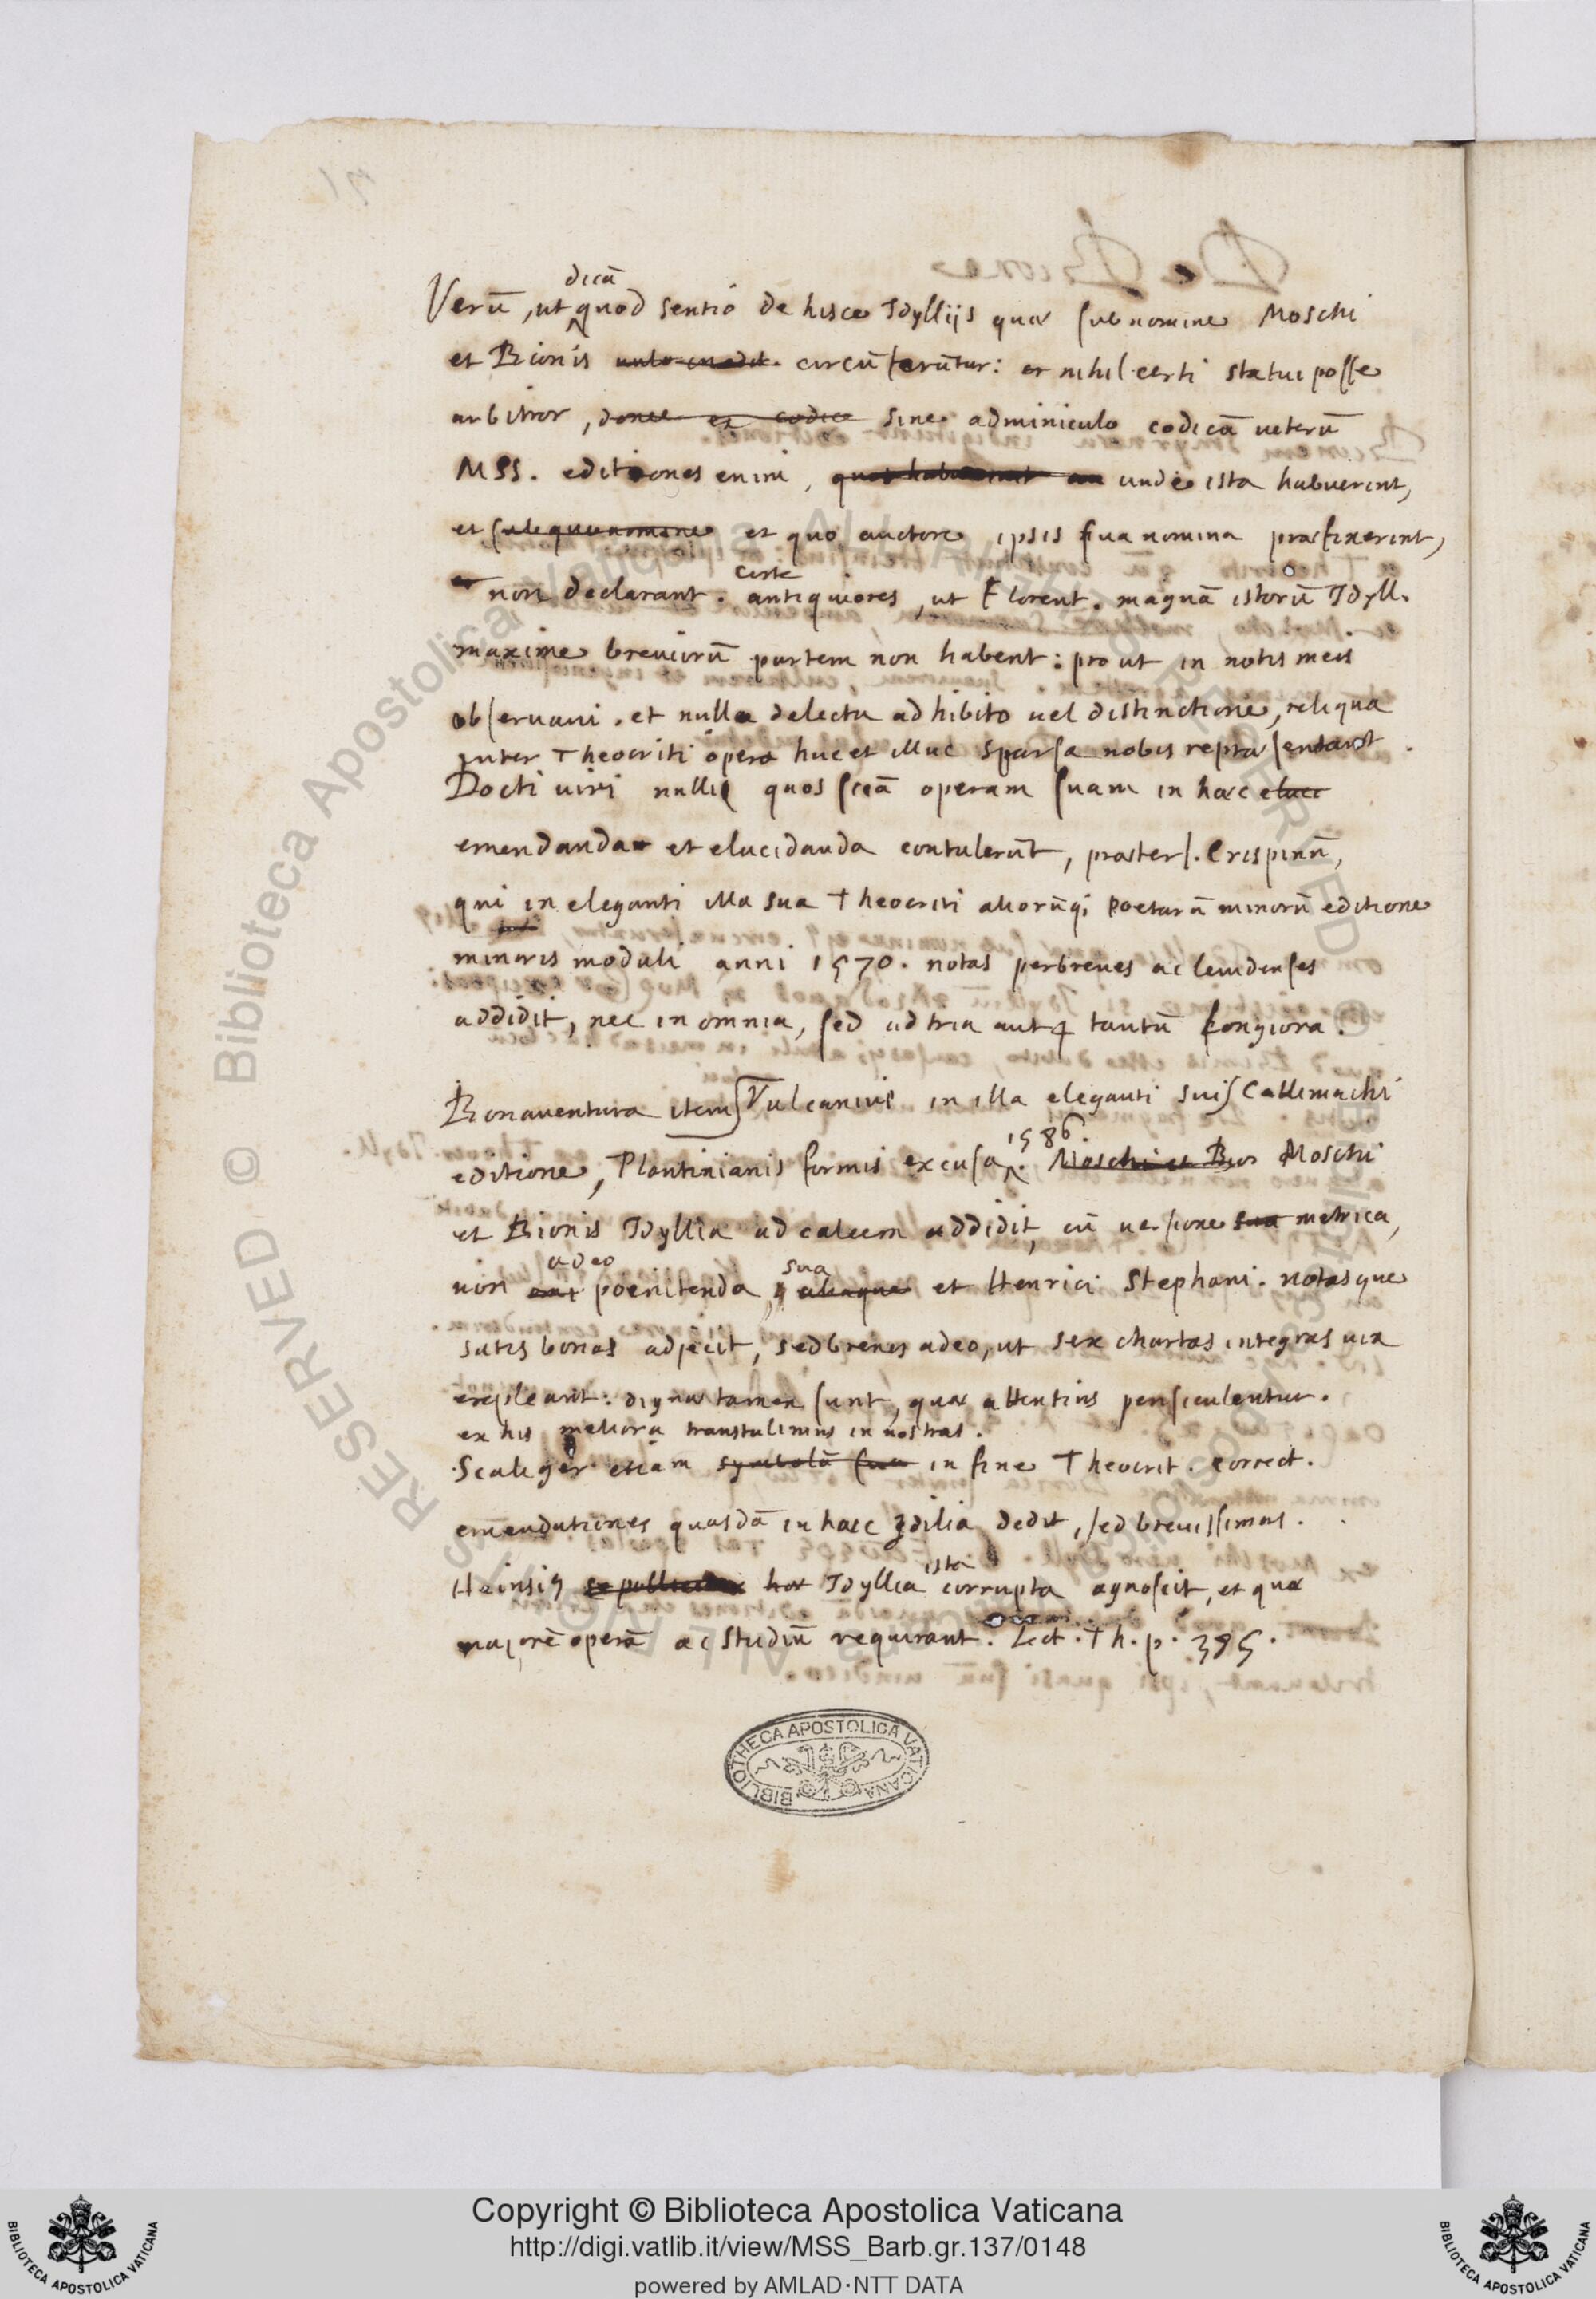 dicā
Verū, ut quod sentio de hisce Idyllijs quæ sub nomine Moschi
et Bionis circūferūtur: nihil certi statui posse
arbitror, donec ex codice sine adminiculo codicū ueterū
MSS. editiones enim, unde ista habuerint,
et sub quo nomine et quo auctore ipsis sua nomina præfixerint,
certe
non declarant. antiquiores, ut Florent. magnā istorū Idyll.
maxime breuiorū partem non habent: prout in notis meis
obseruaui. et nullo delectu adhibito uel distinctione, reliqua
inter Theocriti opera huc et illuc sparsa nobis repræsentant.
Docti uiri nulli quos sciā operam suam in hæc eluci
emendanda et elucidanda contulerūt, præter J. Crispinū,
qui in eleganti illa sua Theocriti aliorūq; poetarū minorū editione
minoris moduli anni 1570. notas perbreues ac leuidenses
addidit, nec in omnia, sed ad tria aut 4 tantū longiora.
Bonauentura item Vulcanius in illa eleganti sui Callimachi
1586.
editione, Plantinianis formis excusa. Moschi et Bio Moschi
et Bionis Idyllia ad calcem addidit, cū uersione sua metrica,
adeo sua
non poenitenda, et Henrici Stephani. notasque
satis bonas adjecit, sed breues adeo, ut sex chartas integras uix
expleant: dignæ tamen sunt, quæ attentius pensiculentur.
ex his meliora transtulimus in nostras.
Scaliger etiam symbolā suā in fine Theocrit. correct.
emendationes quasdā in hæc Idilia dedit, sed breuissimas.
ista
Heinsius hæc Idyllia corrupta agnoscit, et quæ
majorē operā ac studiū requirant. Lect. Th. p. 395.
BIBLIOTHECA APOSTOLICA VATICANA
Biblioteca Apostolica Vaticana
RESERVED ©
ALL RIGHTS RESERVED
Copyright © Biblioteca Apostolica Vaticana
http://digi.vatlib.it/view/MSS_Barb.gr.137/0148
powered by AMLAD·NTT DATA
BIBLIOTECA APOSTOLICA VATICANA
BIBLIOTECA APOSTOLICA VATICANA